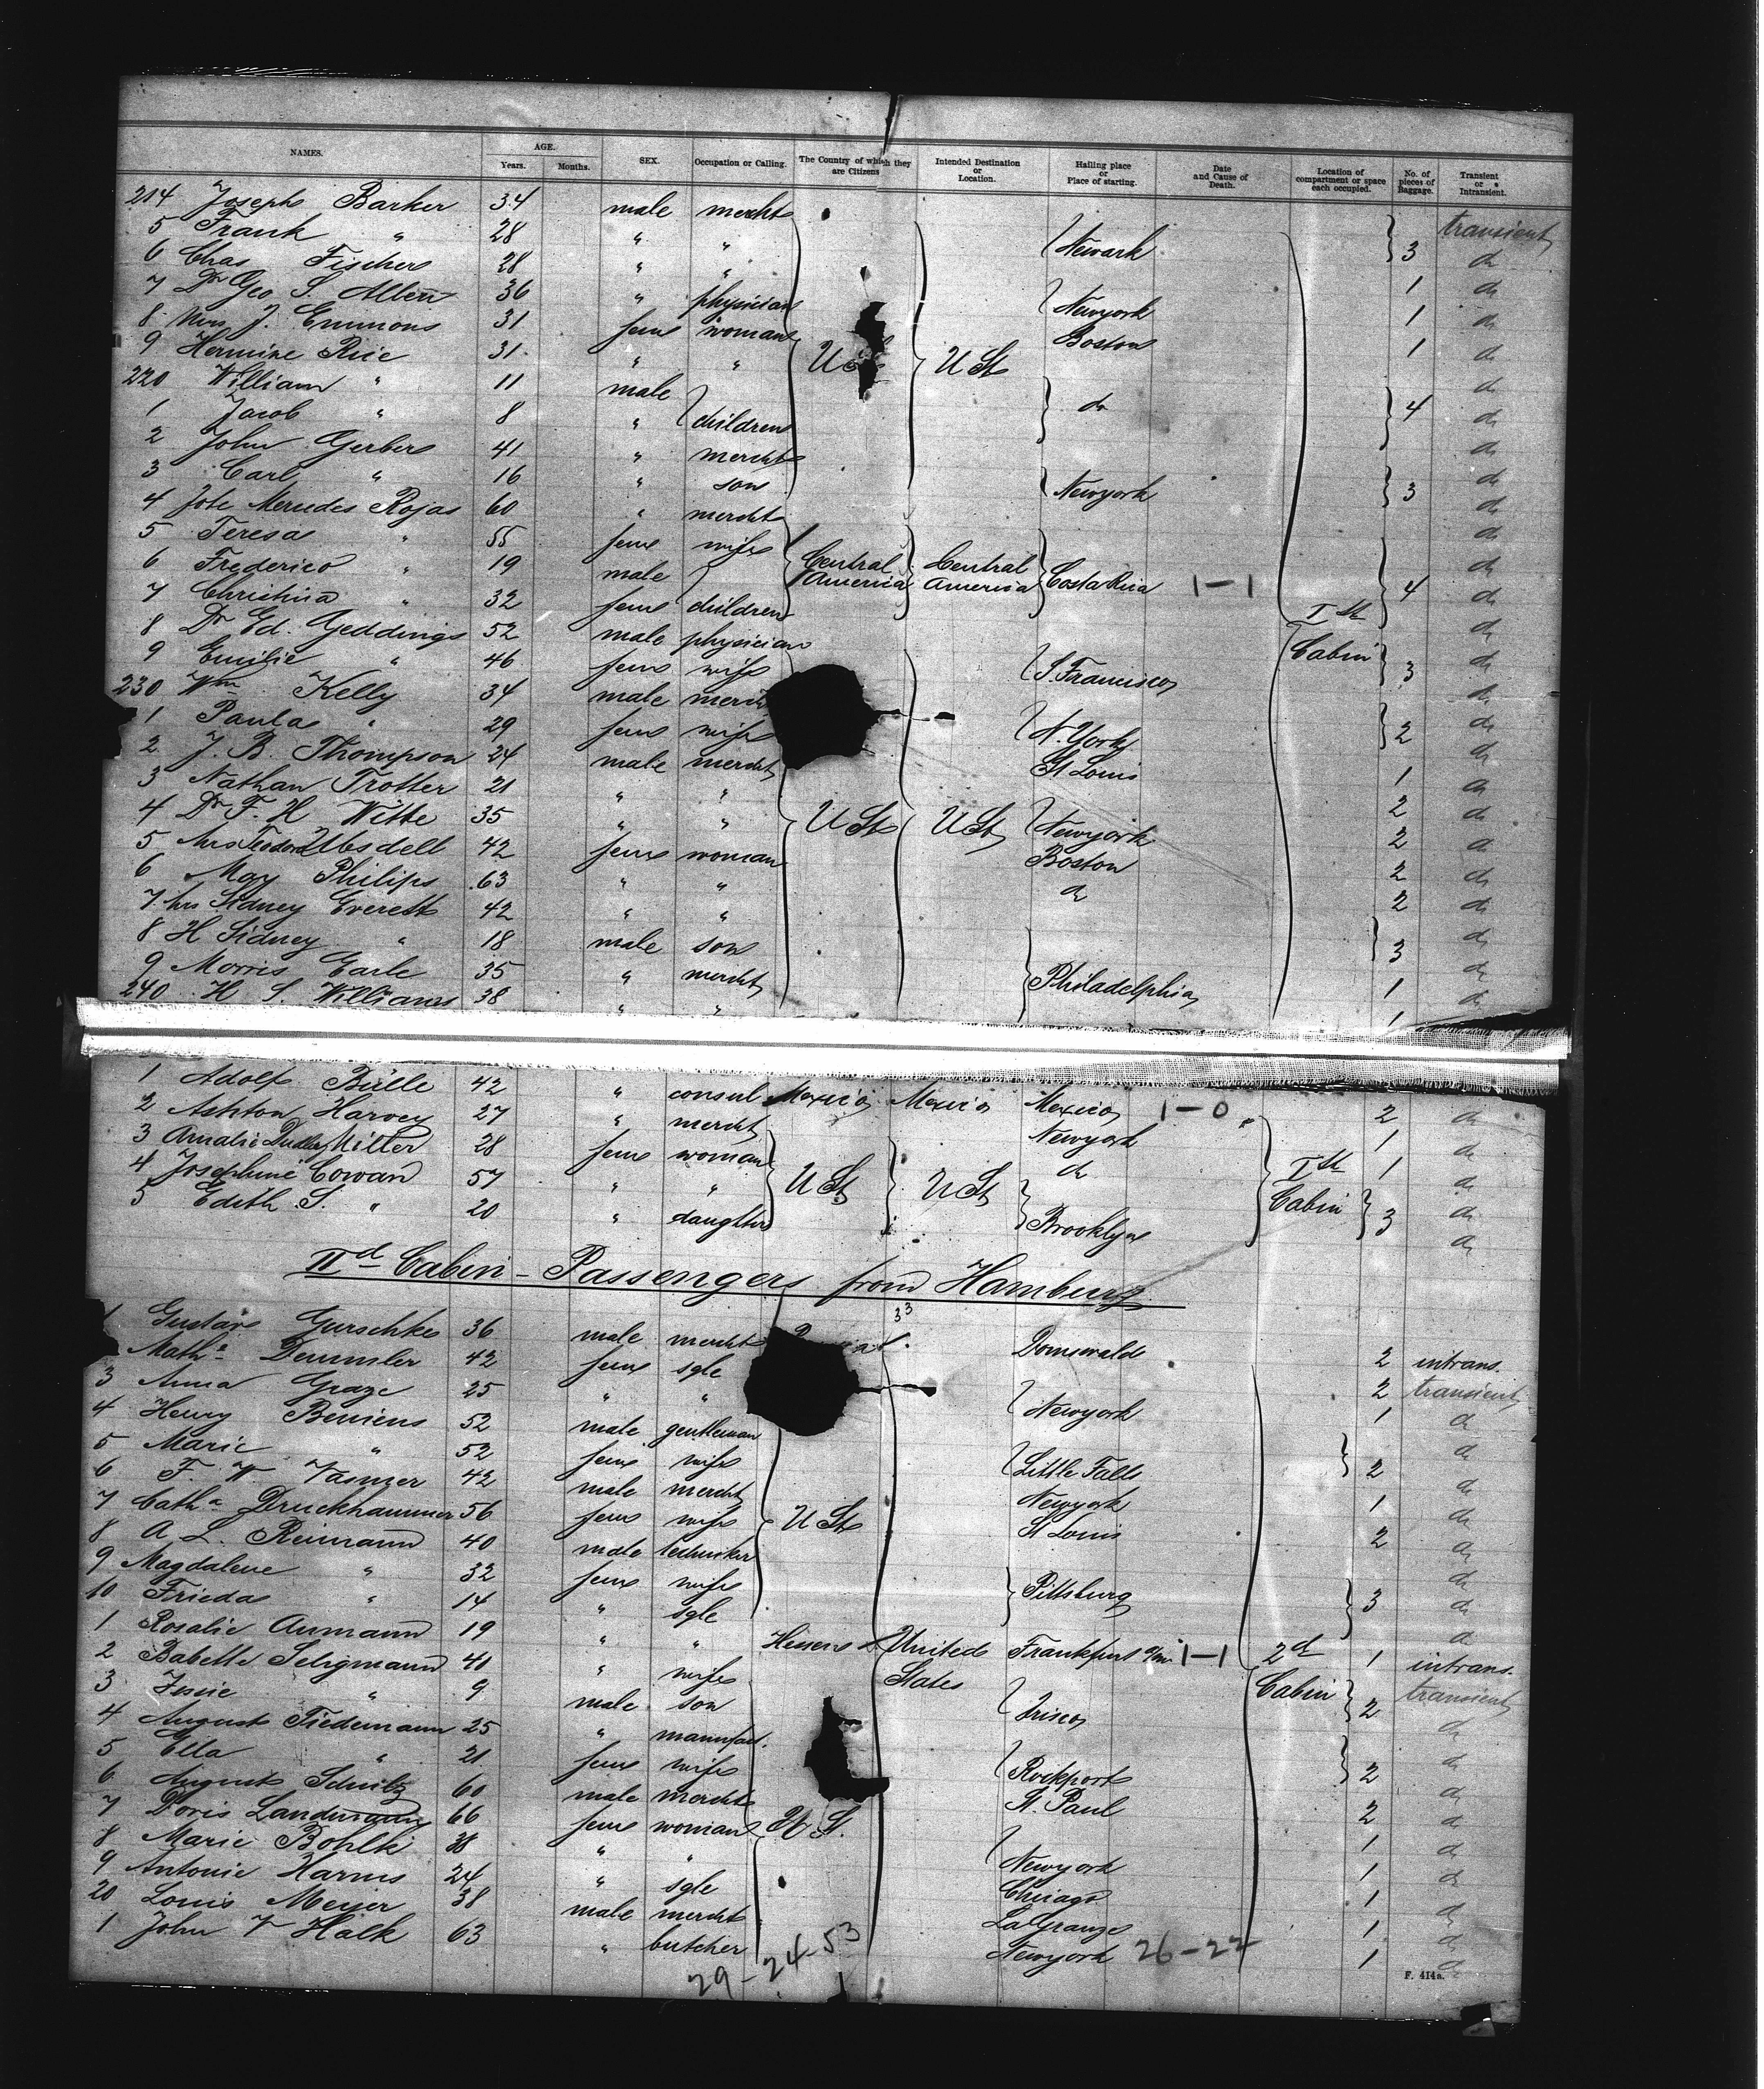 NAMES. AGE. Years. Months. SEX. Occupation or Calling. The Country of which they are Citizens Intended Destination or Location. Hailing place or Place of starting. Date and Cause of Death. Location of compartment or space each occupied. No. of pieces of Baggage. Transient or Intransient.
214 Joseph Barker 34 male mercht transient
5 Frank " 28 " " Newark 3 do
6 Chas Fischer 28 " " 1 do
7 Dr Geo S. Allen 36 " physician Newyork 1 do
8 Mrs J. Emmons 31 fem woman Boston 1 do
9 Hermine Rice 31 " " U St U St do
220 William " 11 male do
1 Jacob " 8 " children do 4 do
2 John Gerber 41 " mercht do
3 Carl " 16 " son Newyork 3 do
4 Rojas 60 " mercht do
5 Teresa " 55 fem wife do
6 Frederico " 19 male Central America Central America Costa Rica 1-1 do
7 Christina " 32 fem children 4 do
8 Dr Ed. Geddings 52 male physician Ist Cabin do
9 Emilie " 46 fem wife S. Francisco 3 do
230 Wm Kelly 34 male do
1 Paula " 29 fem wife N. York 2 do
2 J. B. Thompson 24 male mercht St Louis 1 do
3 Nathan Trotter 21 " " 2 do
4 Dr F. H Witte 35 " " U St U St Newyork 2 do
5 Mrs 42 fem woman Boston 2 do
6 May Philips 63 " " do 2 do
7 Mrs Sidney Everett 42 " " do
8 H Sidney " 18 male son 3 do
9 Morris Earle 35 " mercht Philadelphia 1 do
240 H S. Williams 38 " " 1
1 Adolf Bülle 42 " consul Mexico Mexico Mexico 1-0 2 do
2 Ashton Harvey 27 " mercht Newyork 1 do
3 Amalie Dudley Miller 28 fem woman do 1 do
4 Josephine Cowan 57 " " U St U St Ist Cabin do
5 Edith S. " 20 " daughter Brooklyn 3 do
IId Cabin - Passengers from Hamburg
33
1 Gustav Gurschke 36 male mercht Domswald 2 intrans.
Matha Demmler 42 fem sgle 2 transient
3 Anna Graze 25 " " Newyork 1 do
4 Henry Beniens 52 male gentleman do
5 Marie " 52 fem wife Little Falls 2 do
6 F. W. Vasmer 42 male mercht Newyork 1 do
7 Catha Druckhammer 56 fem wife U St St Louis 2 do
8 A L. Reumann 40 male techniker do
9 Magdalene " 32 fem wife Pittsburg 3 do
10 Frieda " 14 " sgle do
1 Rosalie Aumann 19 " " Hessen United States Frankfurt a/m 1-1 2d Cabin 1 intrans.
2 Babette Seligmann 41 " wife transient
3 " 9 male son Frisco 2 do
4 August Tiedemann 25 " manufact. do
5 Ella " 21 fem wife Rockport 2 do
6 August Schulz 60 male mercht St. Paul 2 do
7 Doris Landmann 66 fem woman U S. 1 do
8 Marie Bohlki 38 " " Newyork 1 do
9 Antonie Harms 24 " sgle Chicago 1 do
20 Louis Meyer 38 male mercht LaGrange 1 do
1 John V Halk 63 " butcher Newyork 26-22 1 do
29-24-53
F. 414a.